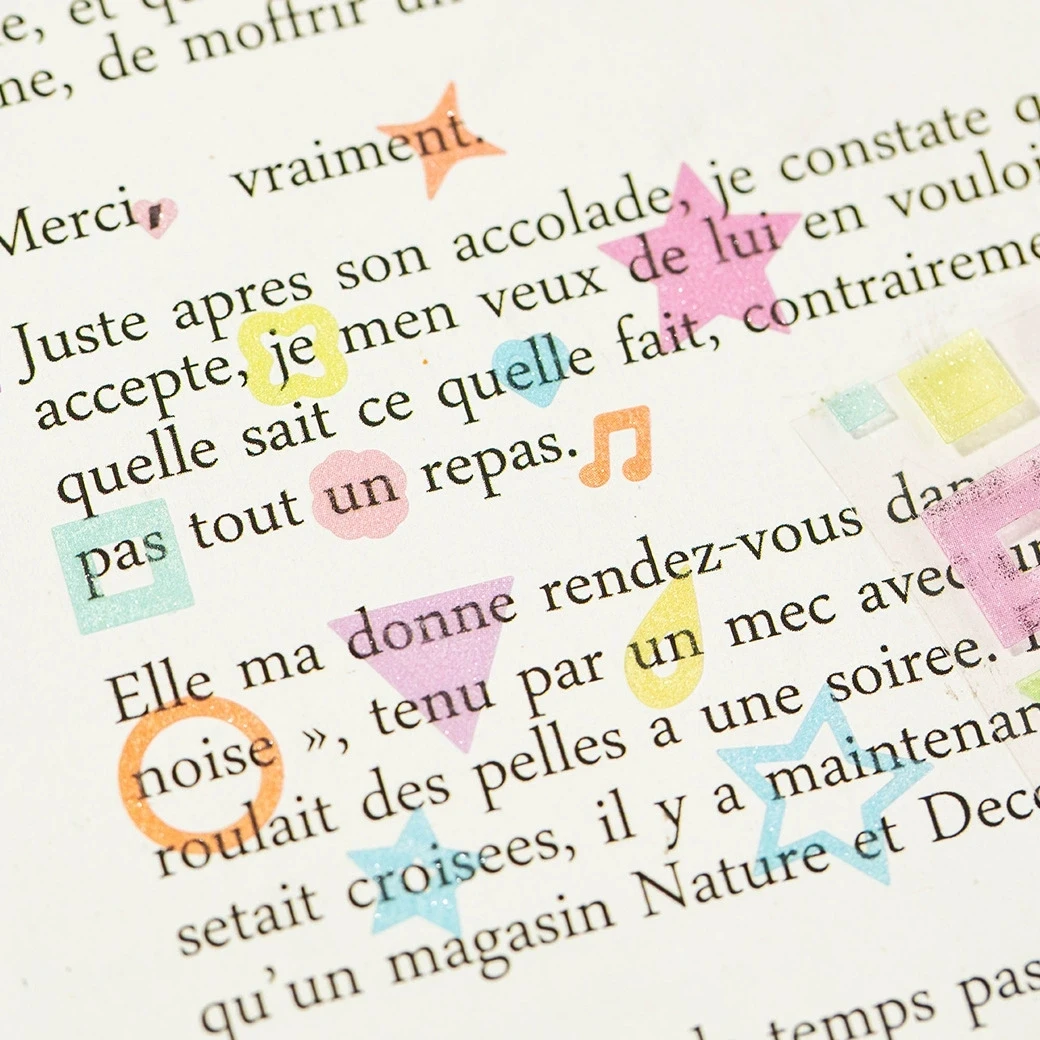 ne, de moffrir un
Merci, vraiment.
Juste apres son accolade, je constate
accepte, je men veux de lui en vouloir
quelle sait ce quelle fait, contrairement
pas tout un repas.
Elle ma donne rendez-vous dans
noise », tenu par un mec avec un
roulait des pelles a une soiree.
setait croisees, il y a maintenant
qu'un magasin Nature et Deco
temps pas